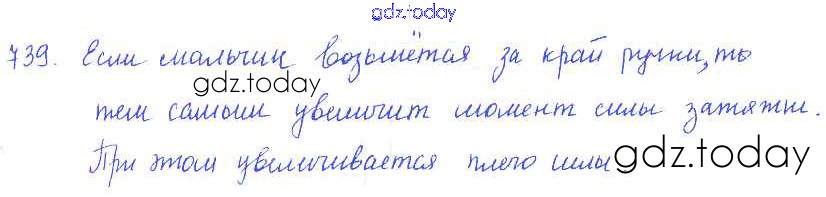 gdz.today
739. Если мальчик возьмётся за край ручки, то
gdz.today
тем самым увеличит момент силы затяжки.
При этом увеличивается плечо силы
gdz.today